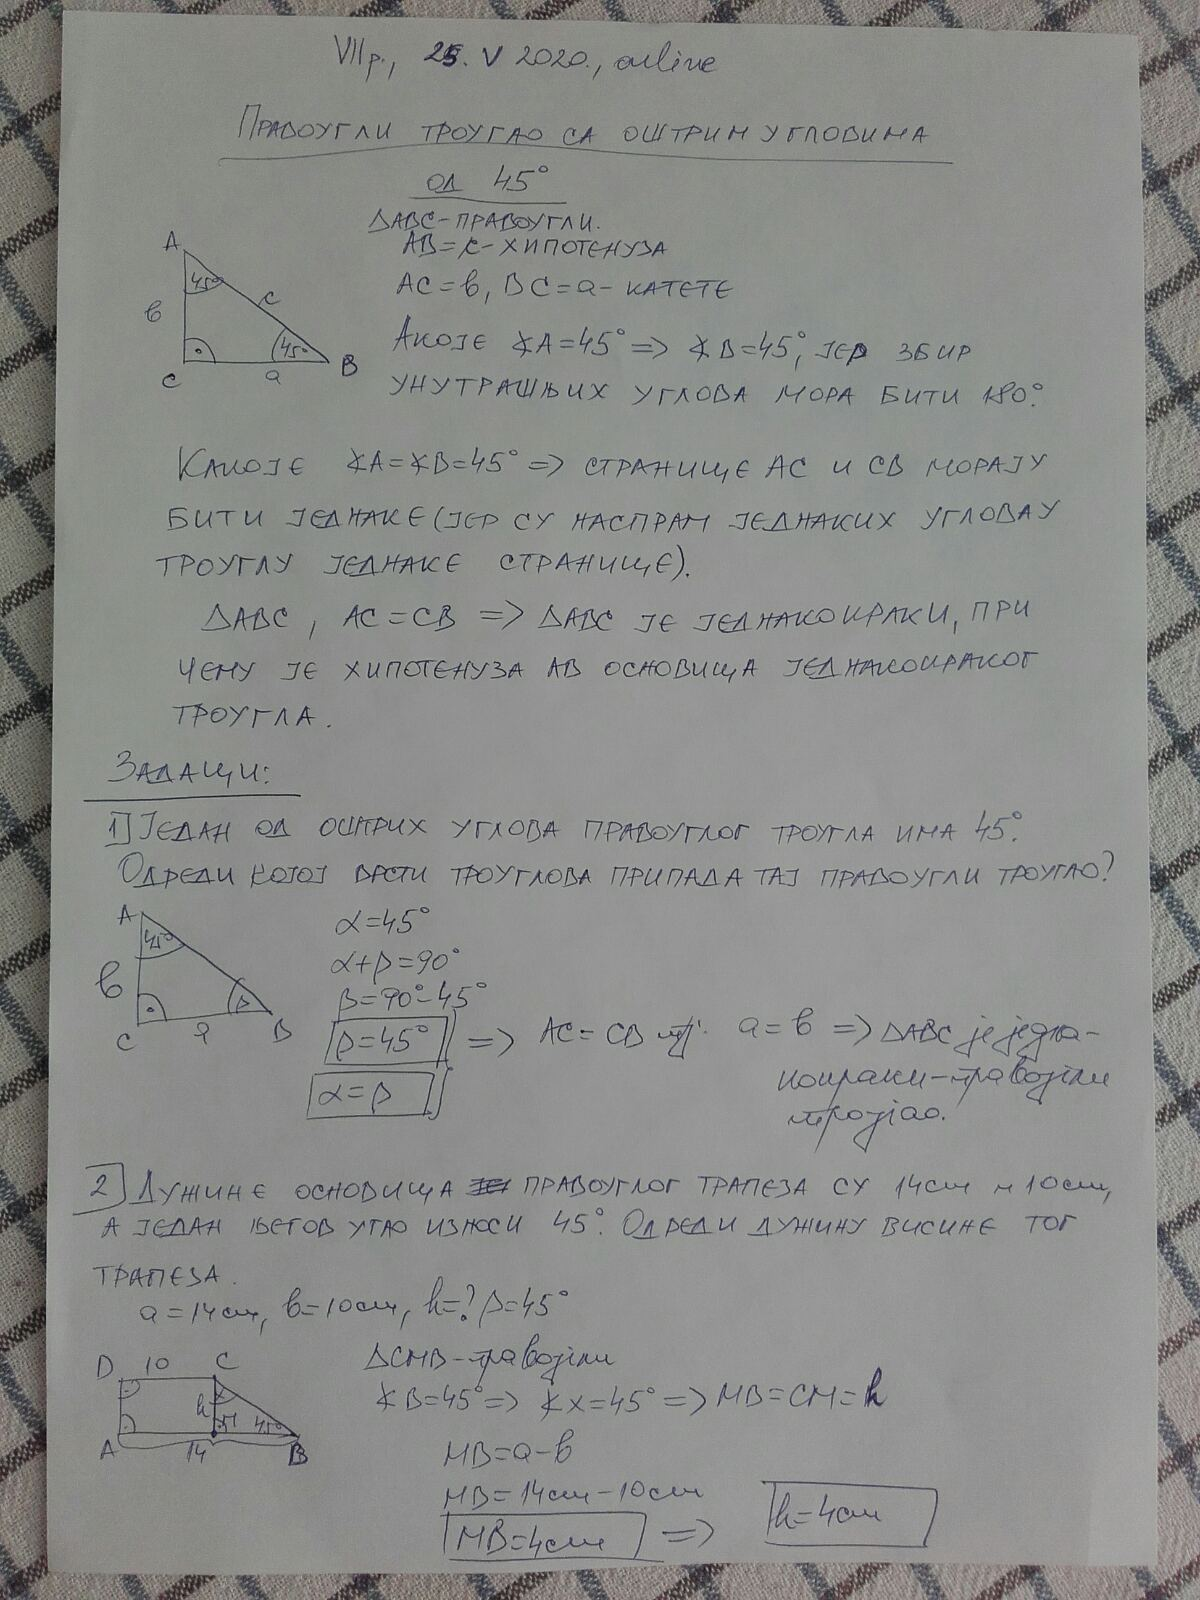 VII р., 25. V 2020., online
ПРАВОУГЛИ ТРОУГАО СА ОШТРИМ УГЛОВИМА
ОД 45°
ΔABC-ПРАВОУГЛИ.
AB=c-ХИПОТЕНУЗА
AC=b, BC=a-КАТЕТЕ
A
45°
c
b
45°
C
a
B
АКО ЈЕ ∢A=45° => ∢B=45°, ЈЕР ЗБИР
УНУТРАШЊИХ УГЛОВА МОРА БИТИ 180°.
КАКО ЈЕ ∢A=∢B=45° => СТРАНИЦЕ AC И CB МОРАЈУ
БИТИ ЈЕДНАКЕ (ЈЕР СУ НАСПРАМ ЈЕДНАКИХ УГЛОВА У
ТРОУГЛУ ЈЕДНАКЕ СТРАНИЦЕ).
ΔABC, AC=CB => ΔABC ЈЕ ЈЕДНАКОКРАКИ, ПРИ
ЧЕМУ ЈЕ ХИПОТЕНУЗА AB ОСНОВИЦА ЈЕДНАКОКРАКОГ
ТРОУГЛА.
ЗАДАЦИ:
1) ЈЕДАН ОД ОШТРИХ УГЛОВА ПРАВОУГЛОГ ТРОУГЛА ИМА 45°.
ОДРЕДИ КОЈОЈ ВРСТИ ТРОУГЛОВА ПРИПАДА ТАЈ ПРАВОУГЛИ ТРОУГАО?
A
45°
b
β
C
a
B
α=45°
α+β=90°
β=90°-45°
β=45° => AC=CB тј. a=b => ΔABC је једна-
α=β
кокраки-правоугли
троугао.
2) ДУЖИНЕ ОСНОВИЦА ПРАВОУГЛОГ ТРАПЕЗА СУ 14cm и 10cm,
А ЈЕДАН ЊЕГОВ УГАО ИЗНОСИ 45°. ОДРЕДИ ДУЖИНУ ВИСИНЕ ТОГ
ТРАПЕЗА.
a=14cm, b=10cm, h=? β=45°
D 10 C
h
M
45°
A 14 B
ΔCMB-правоугли
∢B=45° => ∢x=45° => MB=CM=h
MB=a-b
MB=14cm-10cm
MB=4cm => h=4cm